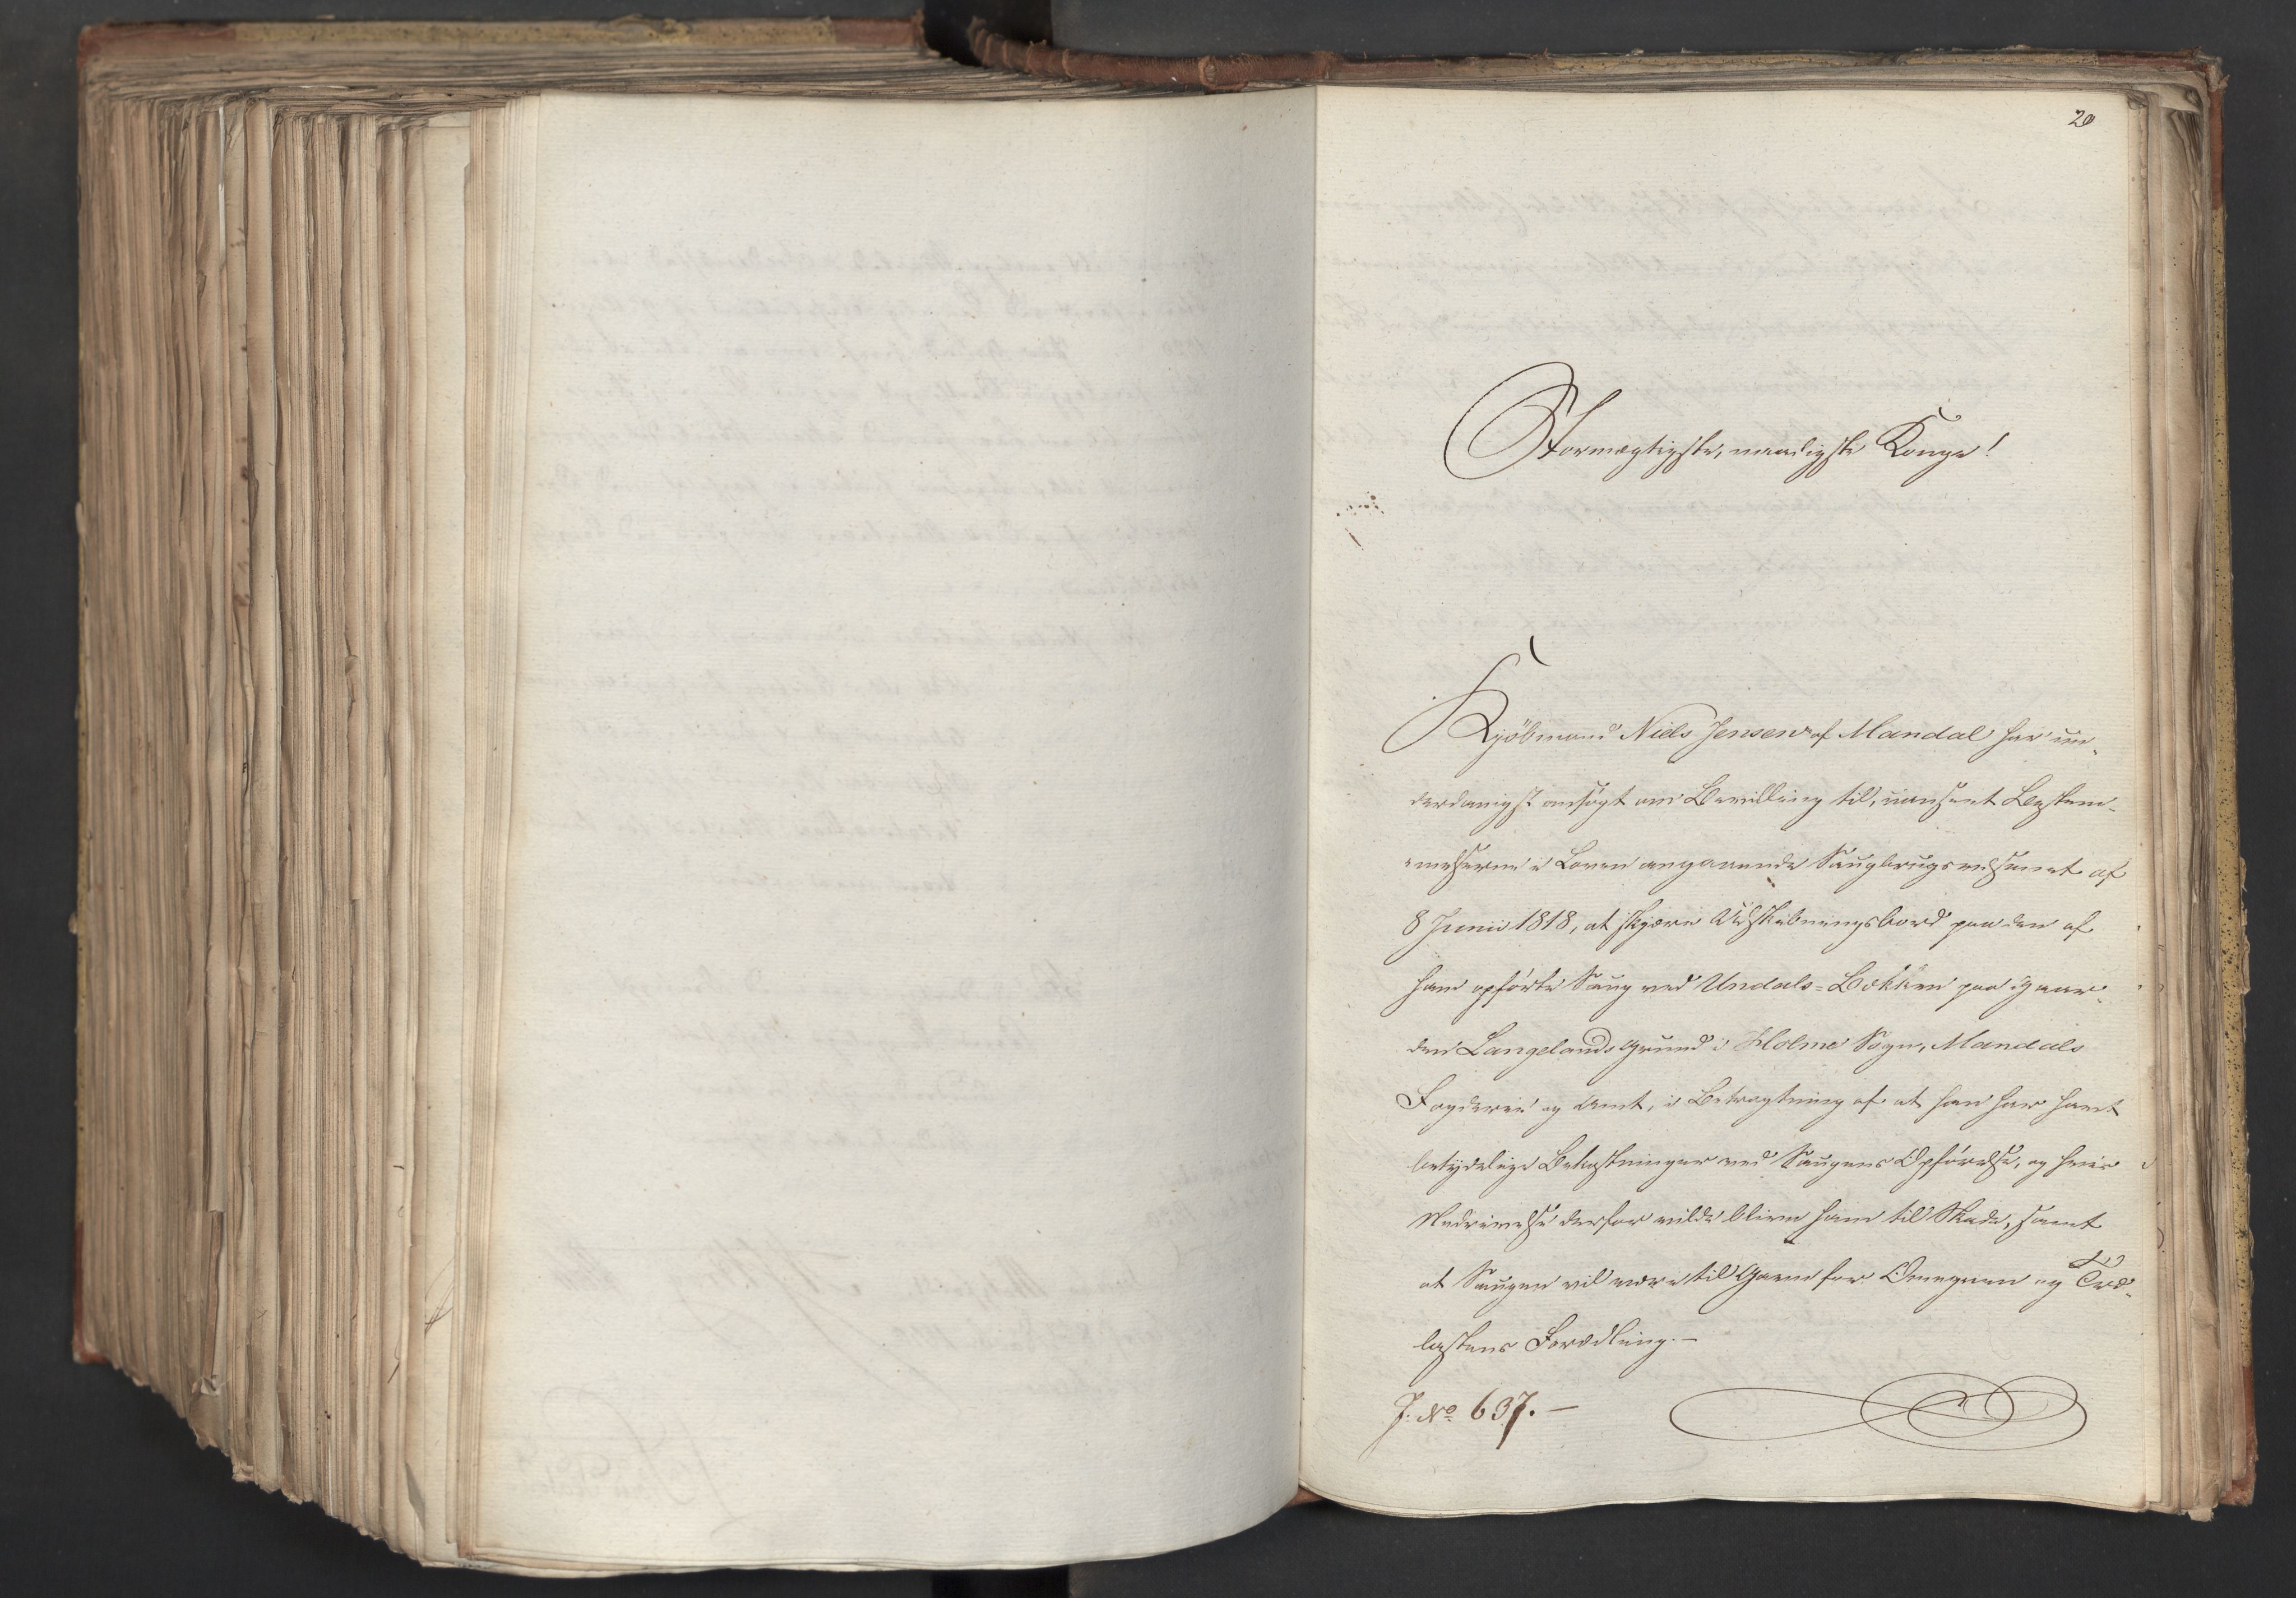 20
Stormægtigste, naadigste Konge!
Kjöbmand Niels Jensen af Mandal har un-
derdanigst ansögt om Bevilling til, uanseet Bestem-
melserne i Loven angaaende Saugbrugsvæsenet af
8 Junii 1818, at skjære Udskibningsbord paa den af
ham opförte Saug ved Undals-Bækken paa Gaar-
den Langelands Grund i Holme Sogn, Mandals
Fogderie og Amt, i Betragtning af at han har havt
betydelige Bekostninger ved Saugens Opförelse, og hvis
Nedrivelse derfor vilde blive ham til Skade, samt
at Saugen vil være til Gavn for Omegnen og Træ-
lastens Forædling. -
J: No 637. -